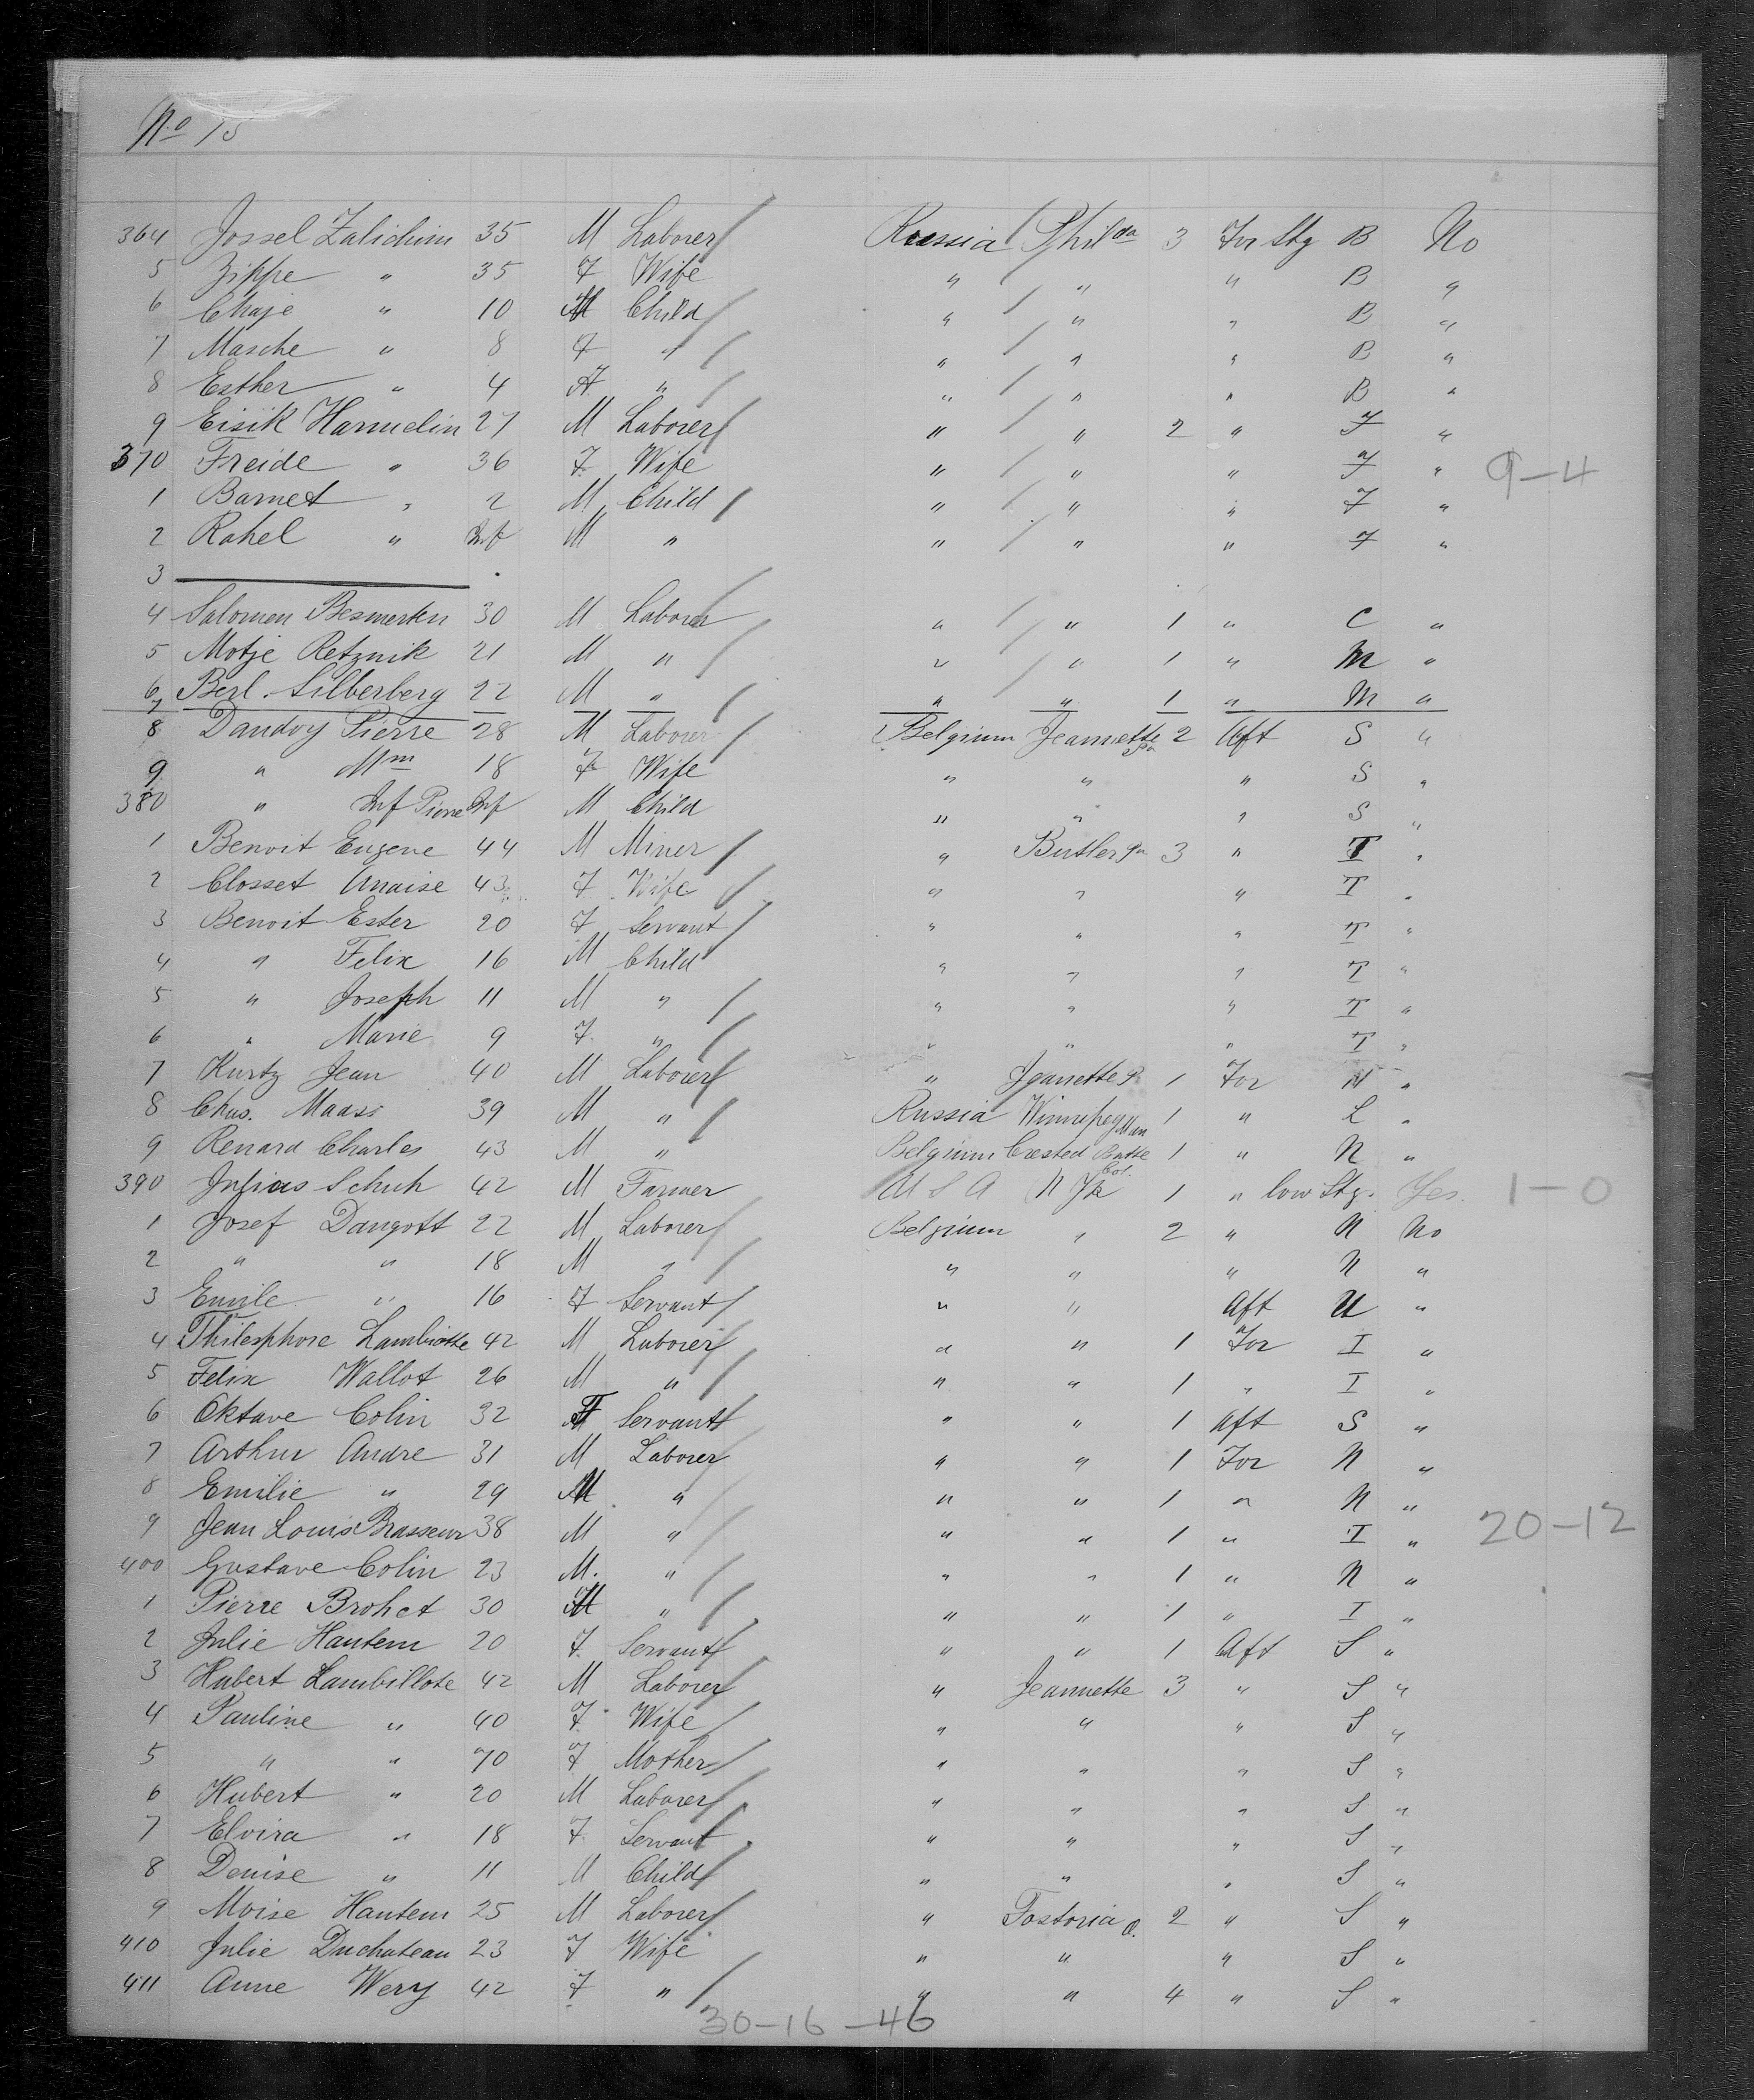 No 15
364 Jossel Zalichim 35 M Laborer Russia Philda 3 For Stg B No
5 Zippe " 35 F Wife " " " B "
6 Chaje " 10 M Child " " " B "
7 Masche " 8 F " " " " B "
8 Esther " 4 F " " " " B "
9 Eisik Hamudin 27 M Laborer " " 2 " F "
370 Freide " 36 F Wife " " " F " 9-4
1 Barnet " 2 M Child " " " F "
2 Rahel " Inf M " " " " F "
3
4 Salomon Besmerten 30 M Laborer " " 1 " C "
5 Motje Retznik 21 M " " " 1 " M "
6 Berl Silberberg 22 M " " " 1 " M "
7
8 Dandoy Pierre 28 M Laborer Belgium Jeannette Pa 2 Aft S "
9 " Mm 18 F Wife " " " S "
380 " Inf Pierre Inf M Child " " " S "
1 Benoit Eugene 44 M Miner " Butler Pa 3 " T "
2 Closset Anaise 43 F Wife " " " T "
3 Benoit Ester 20 F Servant " " " T "
4 " Felix 16 M Child " " " T "
5 " Joseph 11 M " " " " T "
6 " Marie 9 F " " " " T "
7 Kurtz Jean 40 M Laborer " Jeanette P 1 For N "
8 Chas. Maass 39 M " Russia Winnipeg Man 1 " L "
9 Renard Charles 43 M " Belgium Crested Butte Col. 1 " N "
390 Julius Schuh 42 M Farmer U S A N Yk 1 " low Stg. Yes. 1-0
1 Josef Dangott 22 M Laborer Belgium " 2 " N No
2 " " 18 M " " " " N "
3 Emile " 16 F Servant " " Aft U "
4 Thilesphore Lambiotte 42 M Laborer " " 1 For I "
5 Felix Wallot 26 M " " " 1 " I "
6 Oktave Colin 32 F Servant " " 1 Aft S "
7 Arthur Andre 31 M Laborer " " 1 For N "
8 Emilie " 29 M " " " 1 " N "
9 Jean Louis Brasseur 38 M " " " 1 " I " 20-12
400 Gustave Colin 23 M. " " " 1 " N "
1 Pierre Brohet 30 M " " " 1 " I "
2 Julie Hautem 20 F Servant " " 1 Aft S "
3 Hubert Lambillote 42 M Laborer " Jeannette 3 " S "
4 Pauline " 40 F Wife " " " S "
5 " " 70 F Mother " " " S "
6 Hubert " 20 M Laborer " " " S "
7 Elvira " 18 F Servant " " " S "
8 Denise " 11 M Child " " " S "
9 Moise Hautem 25 M Laborer " Fostoria O. 2 " S "
410 Julie Duchateau 23 F Wife " " " S "
411 Anne Wery 42 F " " " 4 " S "
30-16-46